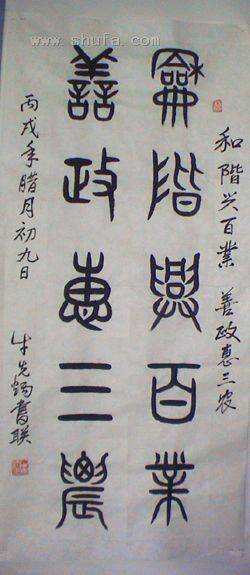 www.shufa.com
和階兴百業 善政惠三农
龢階興百業
譱政惠三農
丙戌年腊月初九日
牛先書联